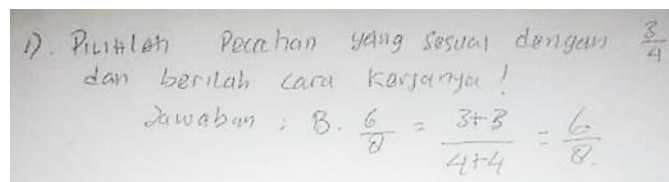 1). Pilihlah Pecahan yang sesuai dengan 3/4
dan berilah cara kerjanya!
Jawaban : B. 6/8 = 3+3/4+4 = 6/8.